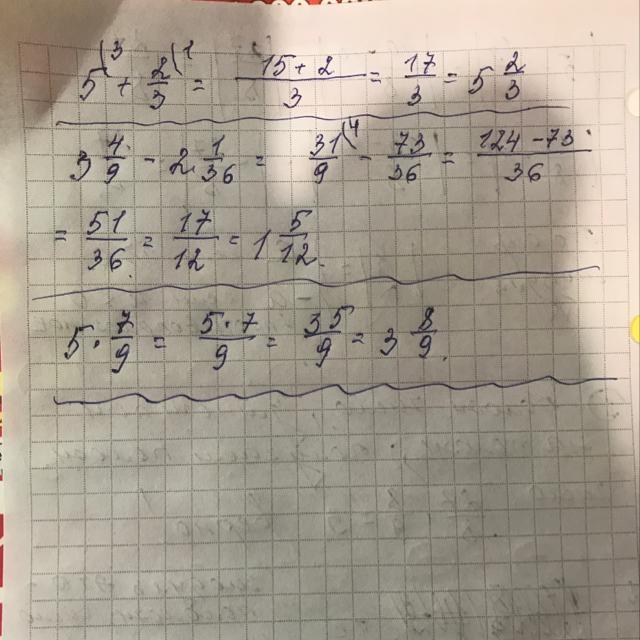 5 + 2/3 = (15 + 2)/3 = 17/3 = 5 2/3
3 4/9 - 2 1/36 = 31/9 - 73/36 = (124 - 73)/36
= 51/36 = 17/12 = 1 5/12
5 · 7/9 = (5 · 7)/9 = 35/9 = 3 8/9